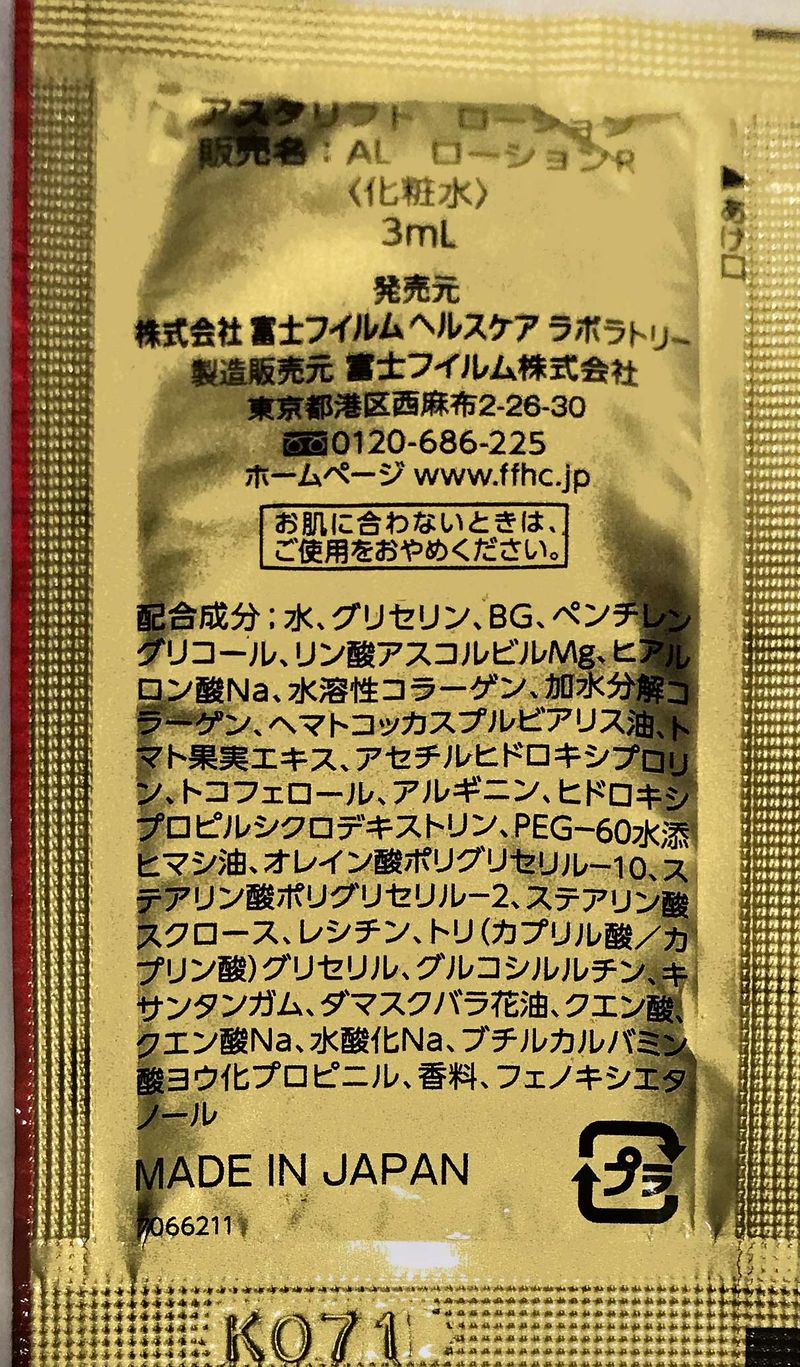 アスタリフト ローション
販売名：AL ローションR
〈化粧水〉
3mL
▶あけ口
発売元
株式会社 富士フイルム ヘルスケア ラボラトリー
製造販売元 富士フイルム株式会社
東京都港区西麻布2-26-30
0120-686-225
ホームページ www.ffhc.jp
お肌に合わないときは、
ご使用をおやめください。
配合成分；水、グリセリン、BG、ペンチレン
グリコール、リン酸アスコルビルMg、ヒアル
ロン酸Na、水溶性コラーゲン、加水分解コ
ラーゲン、ヘマトコッカスプルビアリス油、ト
マト果実エキス、アセチルヒドロキシプロリ
ン、トコフェロール、アルギニン、ヒドロキシ
プロピルシクロデキストリン、PEG-60水添
ヒマシ油、オレイン酸ポリグリセリル-10、ス
テアリン酸ポリグリセリル-2、ステアリン酸
スクロース、レシチン、トリ（カプリル酸／カ
プリン酸）グリセリル、グルコシルルチン、キ
サンタンガム、ダマスクバラ花油、クエン酸、
クエン酸Na、水酸化Na、ブチルカルバミン
酸ヨウ化プロピニル、香料、フェノキシエタ
ノール
MADE IN JAPAN
プラ
7066211
K071